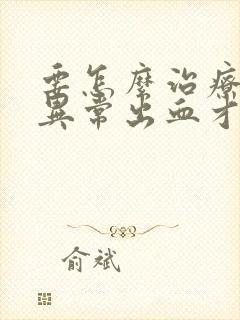 要怎麼治療
異常出血才
俞斌